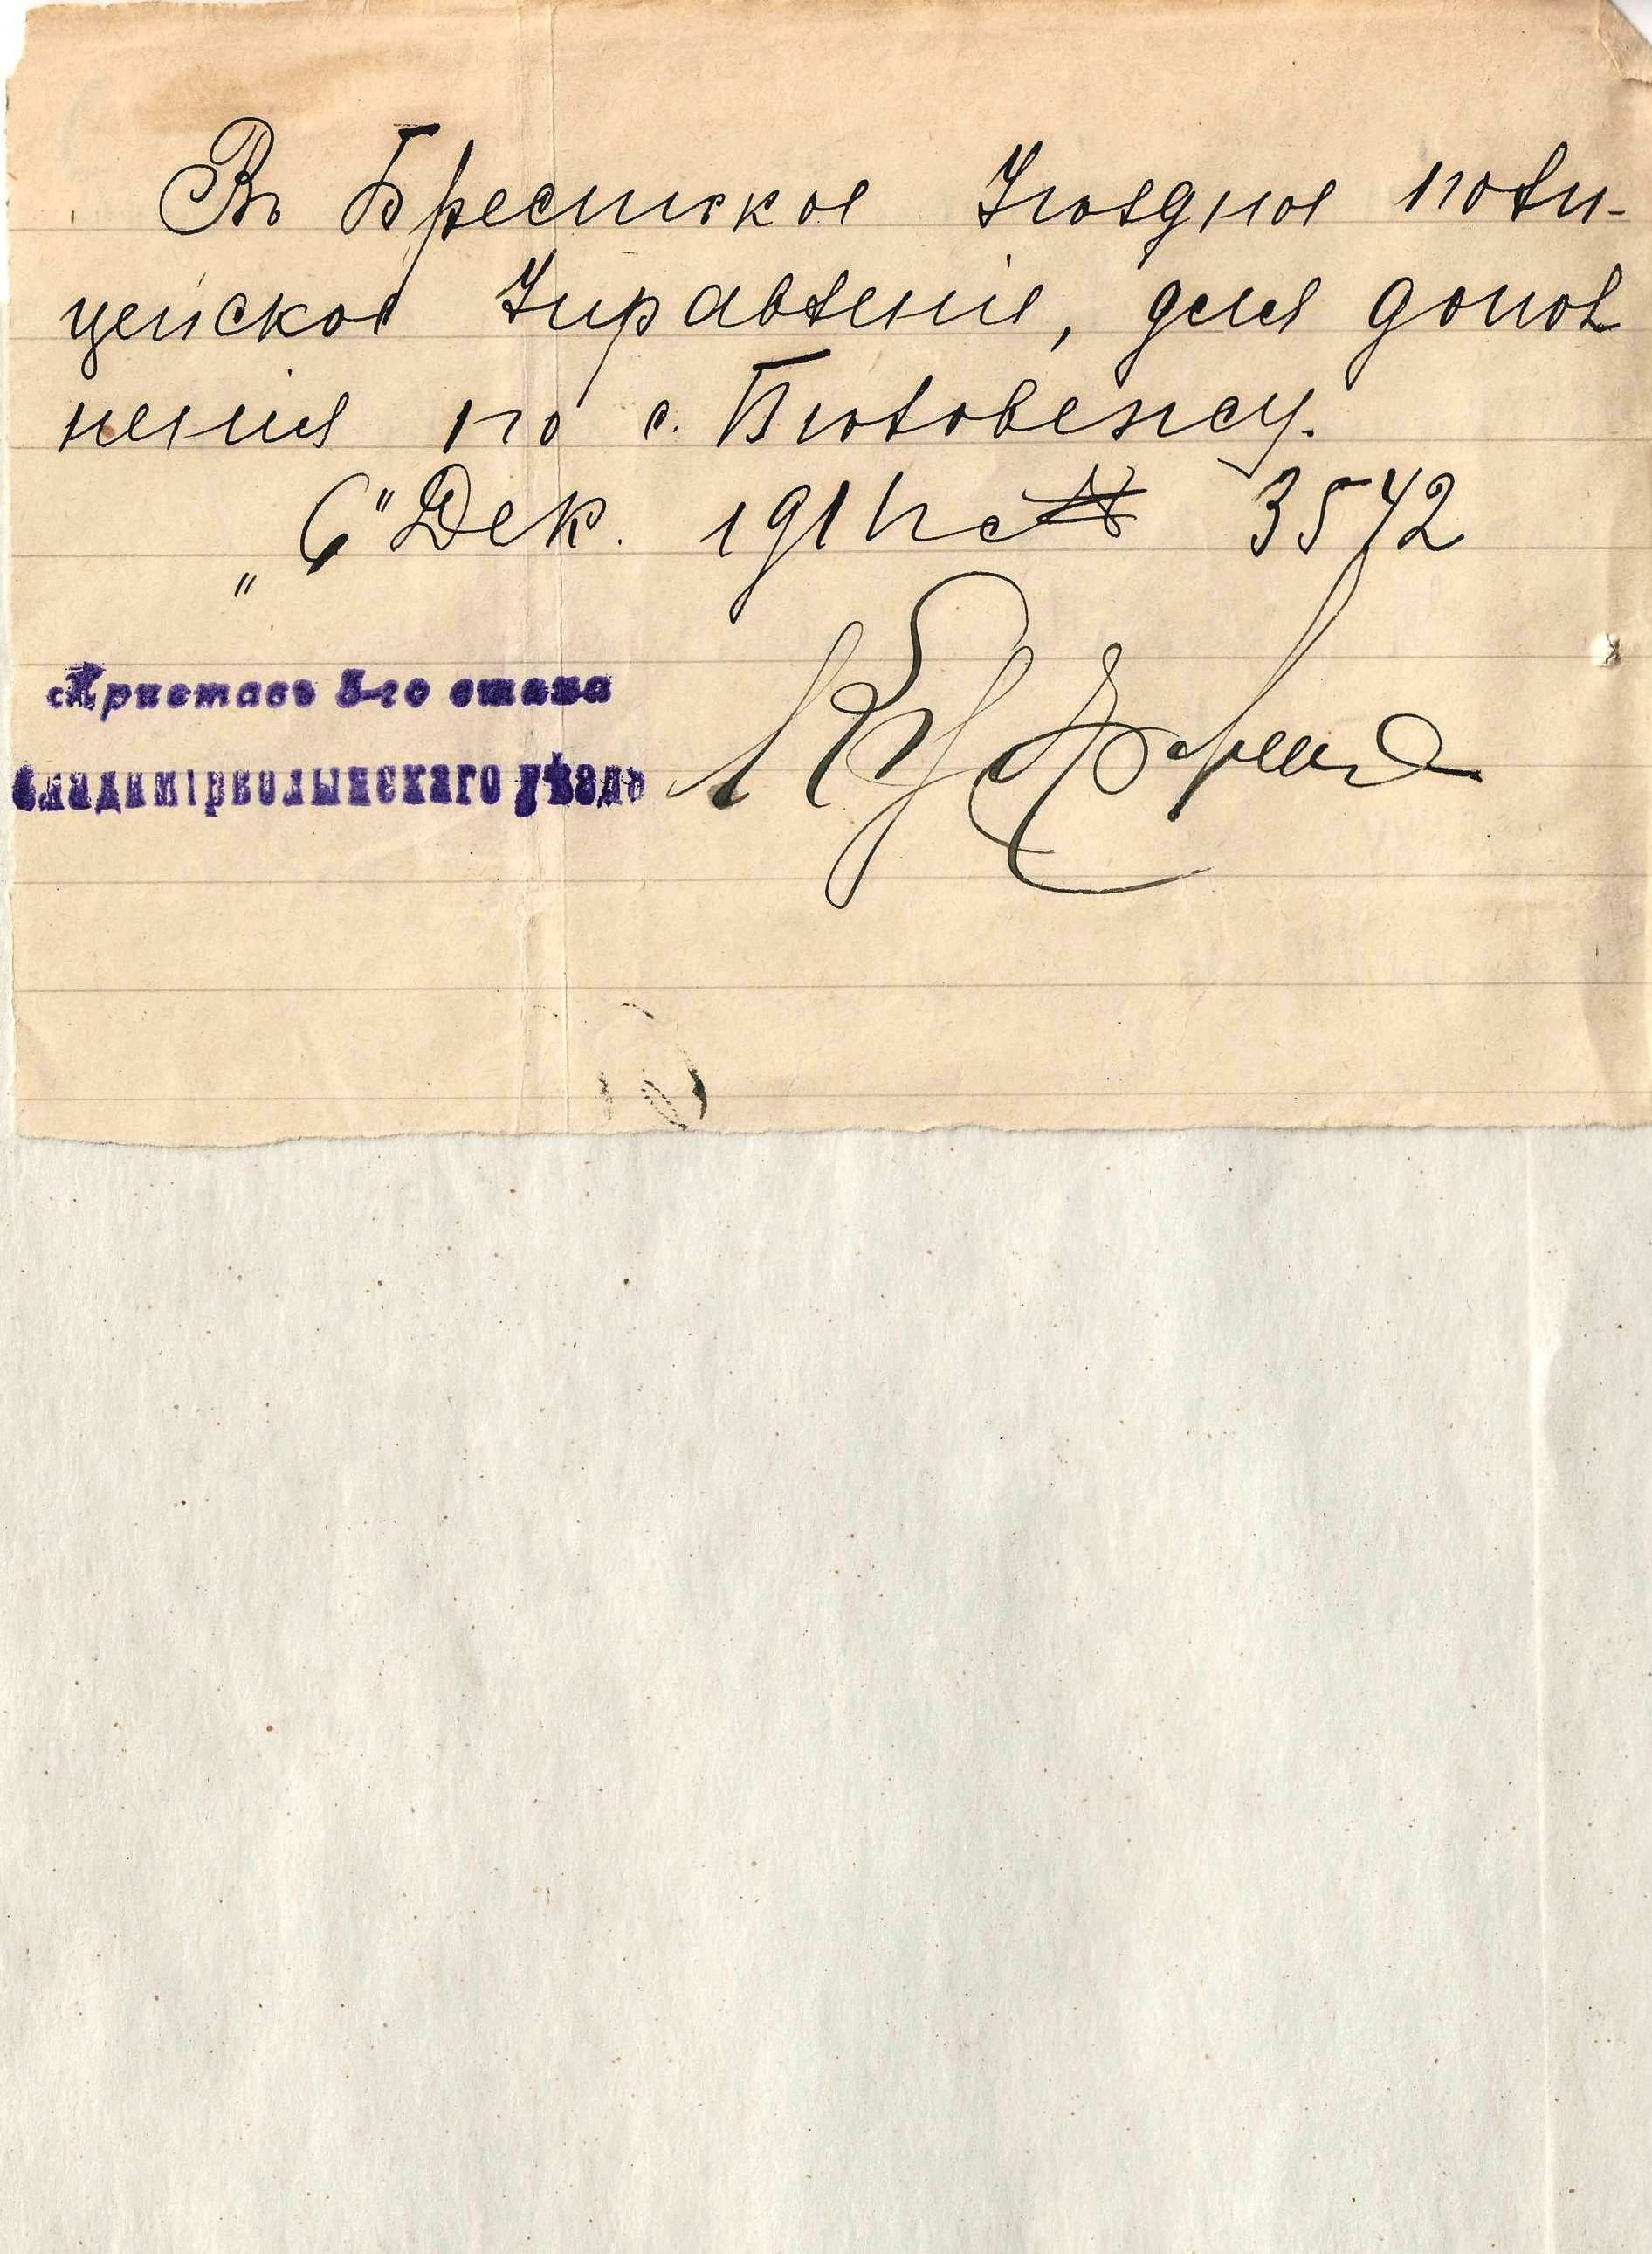 Въ Брестское Уѣздное поли-
цейское Управленіе, для допол
ненія по с. Бѣловежу.
„6" Дек. 1911 г. № 3542
Приставъ 3-го стана
Владимірволынскаго уѣзда